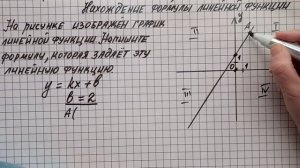 НАХОЖДЕНИЕ ФОРМУЛЫ ЛИНЕЙНОЙ ФУНКЦИИ
На рисунке изображён график
линейной функции. Напишите
формулу, которая задаёт эту
линейную функцию.
y = kx + b
b = 2
A(
II
y
A
I
1
0
1
III
IV